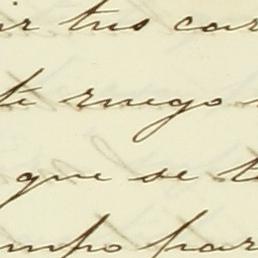 ir tus car
te ruego
que se t
mpo par